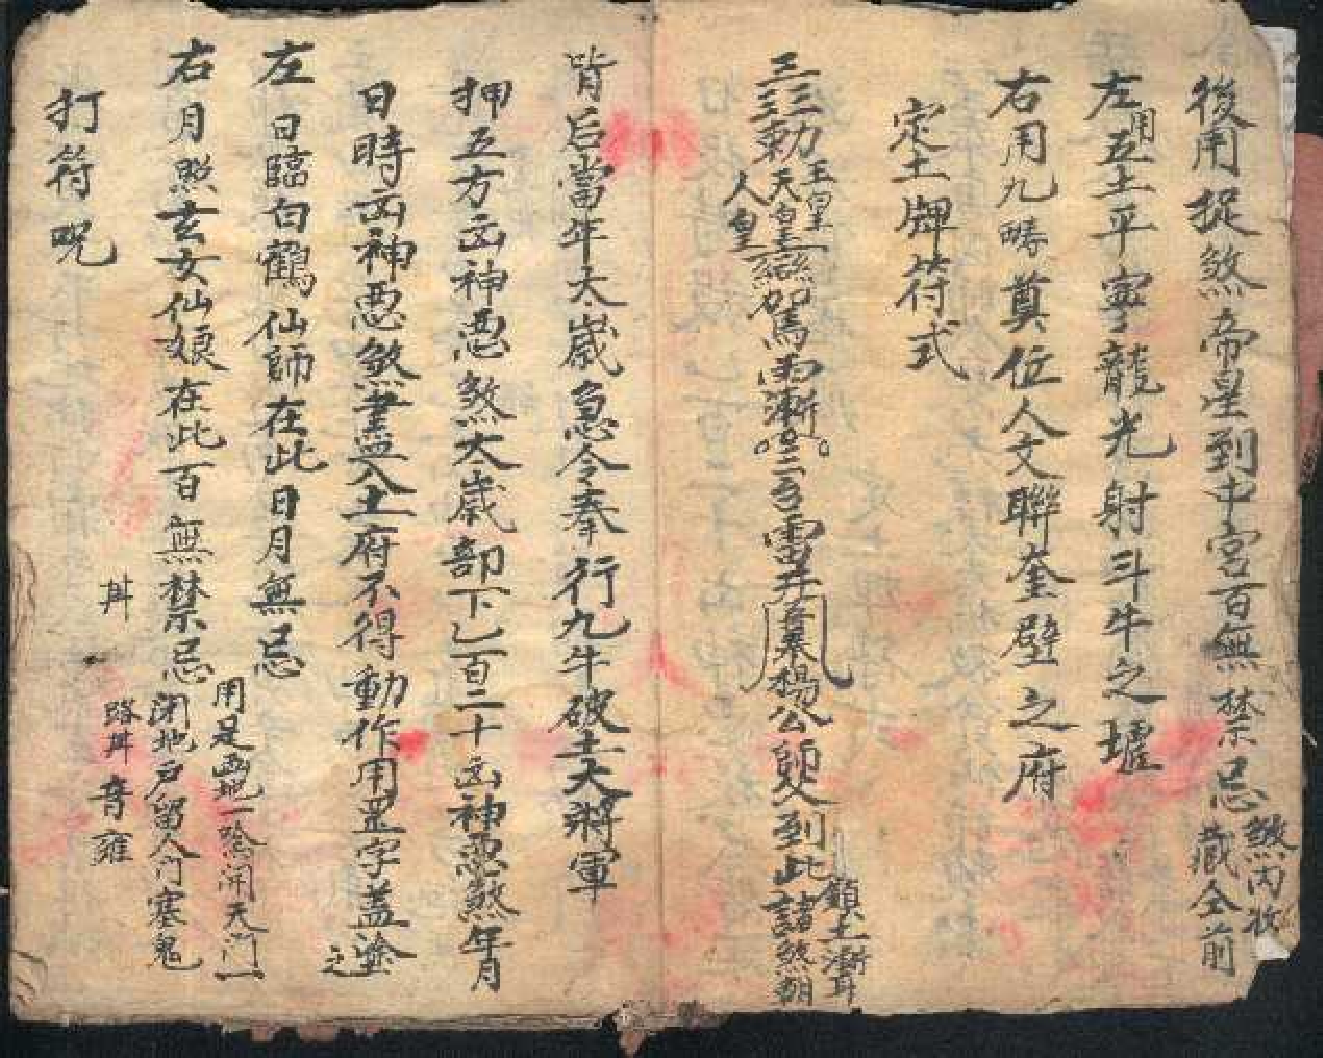 後用捉煞帝星到中宮百無禁忌
煞內收
藏全前
左用五土平寧龍光射斗牛之墟
右用九疇奠位人文聯奎壁之府
定土牌符式
三三三勅
玉皇
天皇
人皇
鸞駕雨漸
雷
奉楊公師父到此諸煞潮
背后當年大歲急令奉行九牛破土大將軍
押五方凶神惡煞太歲部下乙百二十凶神惡煞年月
日時凶神惡煞盡入土府不得動作用罡字蓋塗之
左日臨白鶴仙師在此日月無忌
右月照玄女仙娘在此百無禁忌
用是畫地一念開天門一
閉地戶留人門塞鬼
路
打符咒